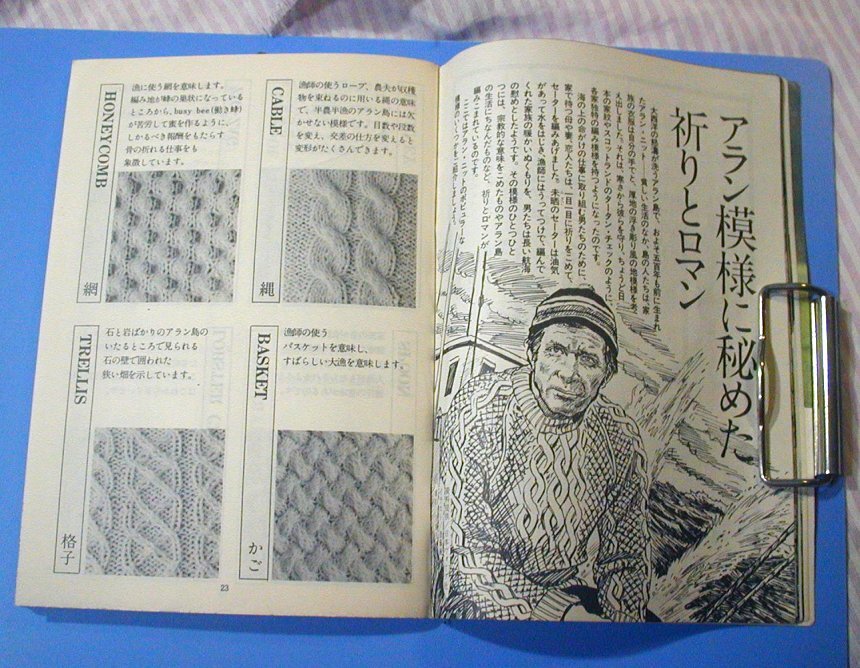 アラン模様に秘めた
祈りとロマン
大西洋の怒濤が洗うアラン島で、およそ五百年も前に生まれ
たアラン・ニット——貧しい生活のなか、島の人たちは、家
族の衣服は自分の手でと、厚地の浮き彫り風の地模様を考
え出しました。それは、寒さから彼らを守り、ちょうど日
本の家紋やスコットランドのタータン・チェックのように、
各家独特の編み模様を持つようになったのです。
海の上の命がけの仕事に取り組む男たちのために、
家で待つ母や妻、恋人たちは、一目一目に祈りをこめて、
セーターを編みあげました。未晒のセーターは油気
があって水をはじき、漁師にはうってつけで、編んで
くれた家族の暖かいぬくもりを、男たちは長い航海
の慰めとしたようです。その模様のひとつひと
つには、宗教的な意味をこめたものやアラン島
の生活にちなんだものなど、祈りとロマンが
編みこまれているのです。
ここではアラン・ニットのポピュラーな
模様のいくつかをご紹介しましょう。
CABLE
縄
漁師の使うロープ、農夫が収穫
物を束ねるのに用いる縄の意味
で、半農半漁のアラン島には欠
かせない模様です。目数や段数
を変え、交差の仕方を変えると
変形がたくさんできます。
HONEYCOMB
網
漁に使う網を意味します。
編み地が蜂の巣状になっている
ところから、busy bee(働き蜂)
が苦労して蜜を作るように、
しかるべき報酬をもたらす
骨の折れる仕事をも
象徴しています。
BASKET
かご
漁師の使う
バスケットを意味し、
すばらしい大漁を意味します。
TRELLIS
格子
石と岩ばかりのアラン島の
いたるところで見られる
石の壁で囲われた
狭い畑を示しています。
23